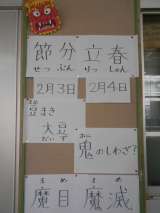 節分 立春
せつ ぶん りっ しゅん
2月3日 2月4日
まめ
豆まき
大豆
だいず
おに
鬼のしわざ?
まめ まめ
魔目 魔滅